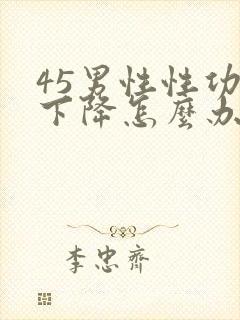 45男性性功
下降怎麼办
李忠齊